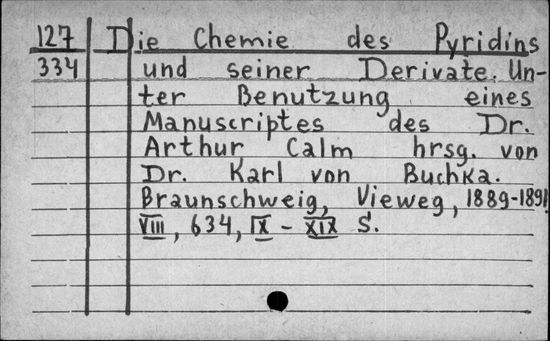 127 Die Chemie des Pyridins
334 und seiner Derivate. Un-
ter Benutzung eines
Manuscriptes des Dr.
Arthur Calm hrsg. von
Dr. Karl von Buchka.
Braunschweig, Vieweg, 1889-1891
VIII, 634, IX - XIX S.